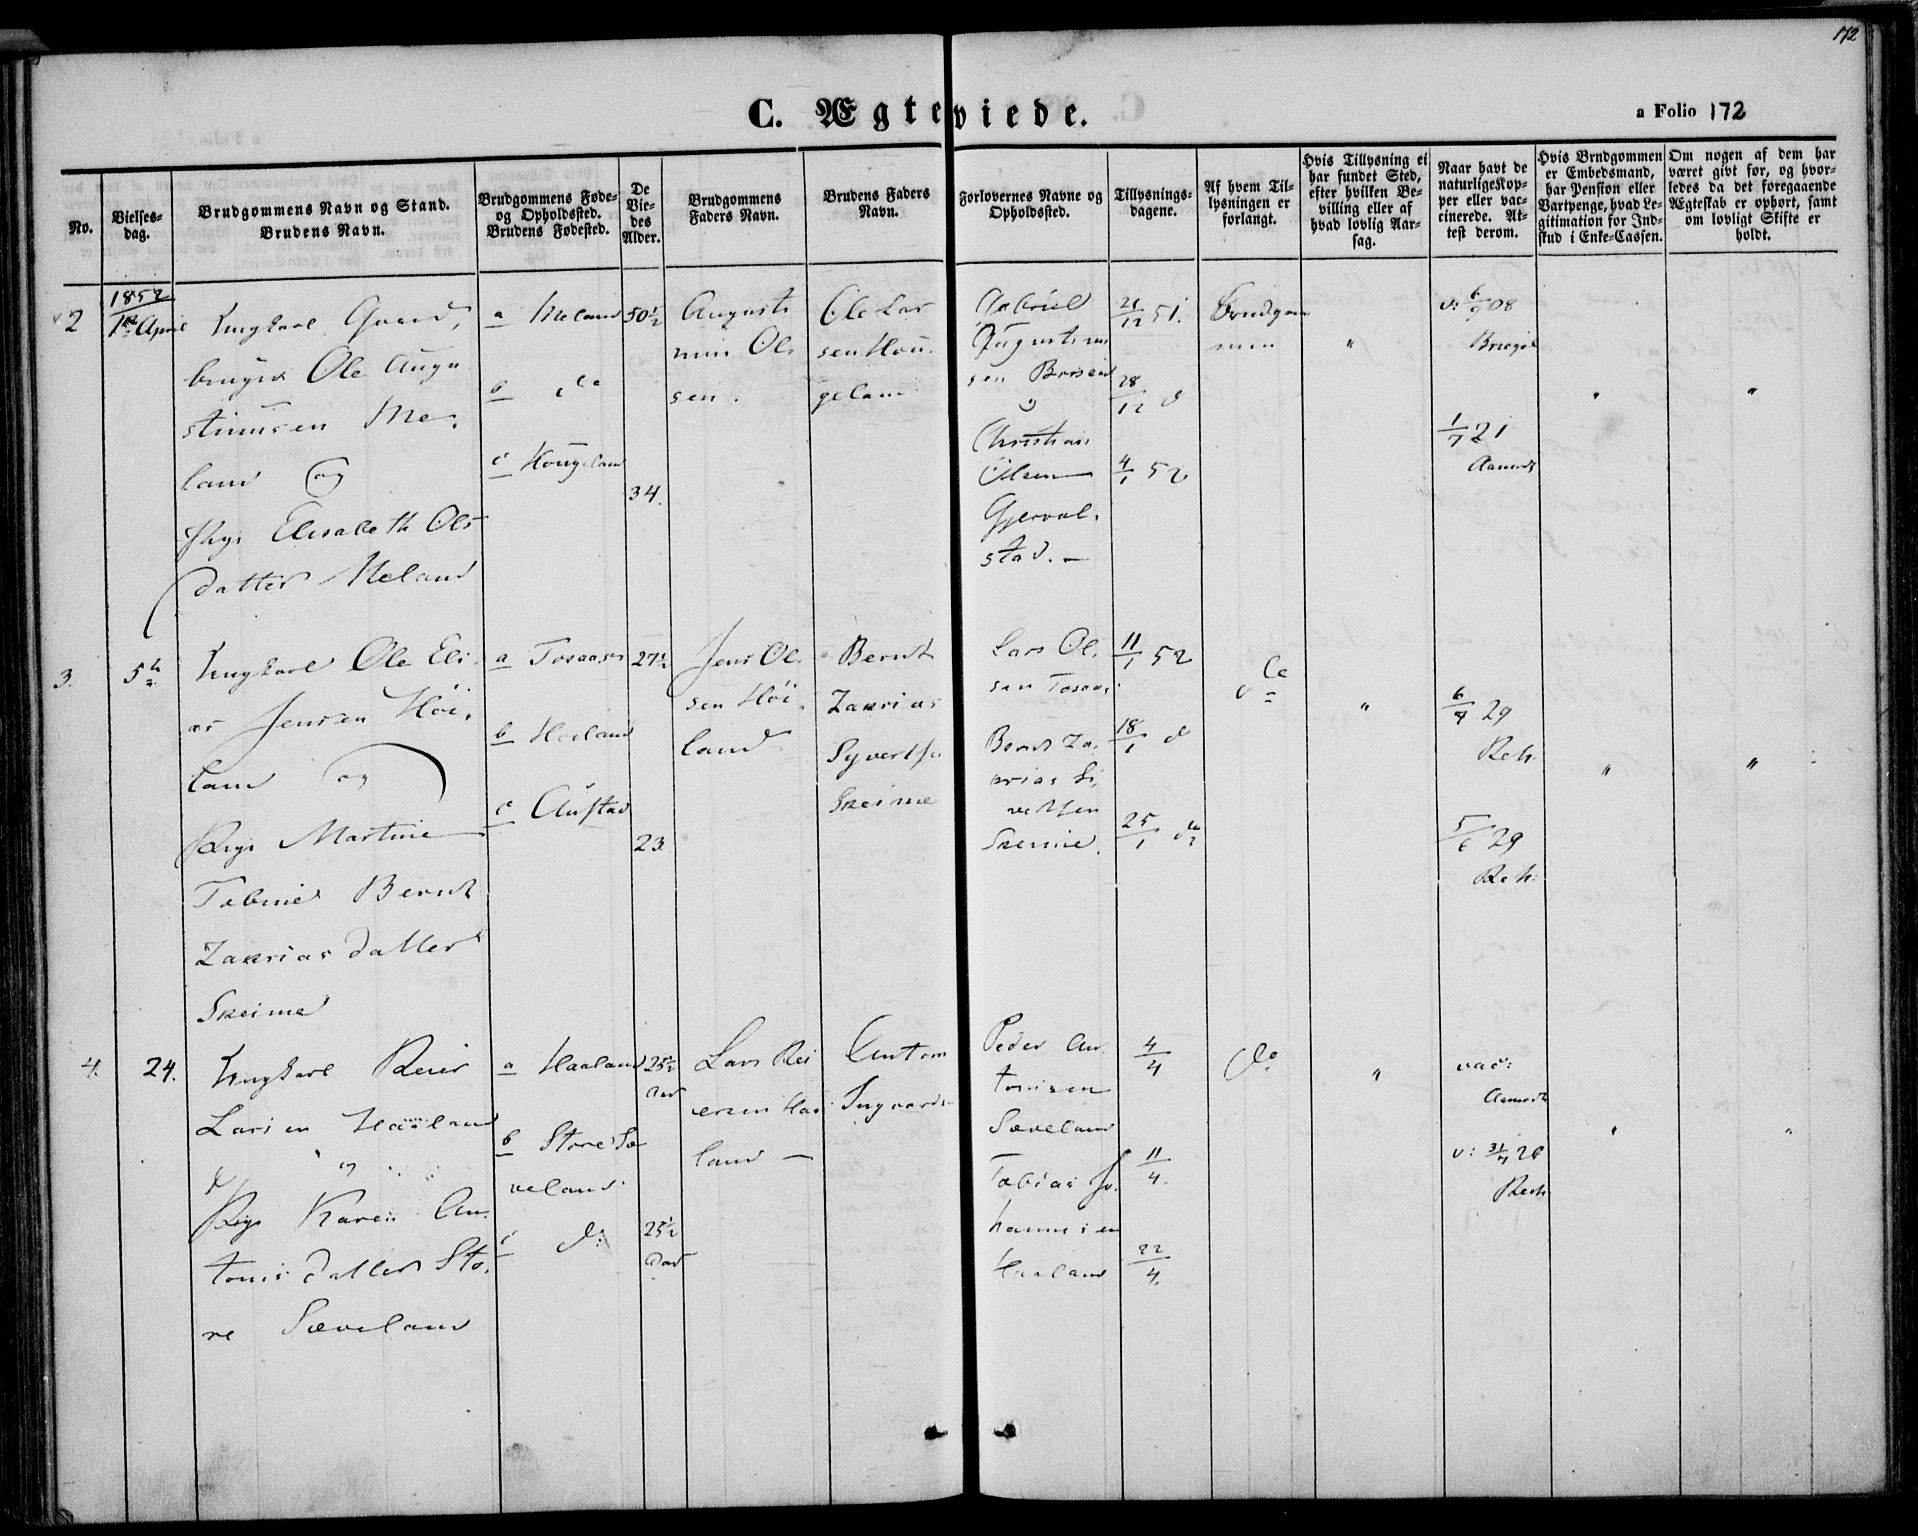 172
C. Ægteviede.
a Folio 172
No.
Vielses-
dag.
Brudgommens Navn og Stand.
Brudens Navn.
Brudgommens Føde-
og Opholdssted.
Brudens Fødested.
De
Vie-
des
Alder.
Brudgommens
Faders Navn.
Brudens Faders
Navn.
Forlovernes Navne og
Opholdssted.
Tillysnings-
dagene.
Af hvem Til-
lysningen er
forlangt.
Hvis Tillysning ei
har fundet Sted,
efter hvilken Be-
villing eller af
hvad lovlig Aar-
sag.
Naar havt de
naturlige Kop-
per eller vac-
cinerede. At-
test derom.
Hvis Brudgommen
er Embedsmand,
har Pension eller
Vartpenge, hvad Le-
gitimation for Ind-
skud i Enke-Cassen.
Om nogen af dem har
været givt før, og hvor-
ledes da det foregaaende
Ægteskab er ophørt, samt
om lovligt Skifte er
holdt.
2
1852
1ste April
Ungkarl Gaard,
bruger Ole Augu
stinusen Me,
land og
Pige Elisabeth Ols
datter Meland
a Meland
b do
c Hougeland
50½
34.
Augusti
nus Ol
sen.
Ole Lar
sen Hou
geland
Gabriel
Augustinu
sen
Christian
Olsen
Gjerval,
stad. —
21/12 51.
28/12 d
4/1 52
Brudgom
men
"
v: 6/9 08
1/7 21
Aamodt
"
"
3.
5te
Ungkarl Ole Eli
as Jensen Höi,
land og
Pige Martine
Tobine Bernt
Zakrias datter
Skeime
a Tosaas
b Höiland
c Austad
27½
23.
Jens Ol
sen Höi,
land
Bernt
Zakrias
Syvertse
Skeime
Lars Ol,
sen Tosaas
Bernt Za,
krias Si,
vertsen
Skeime.
11/1 52
18/1 d
25/1 do
do
"
6/9 29
Reh.
5/6 29
Reh:
"
"
4.
24.
Ungkarl Reier
Larsen Haaland
og
Pige Karen An,
tonis datter Sto,
re Sæveland
a Haaland
b Store Sæ
veland
c do
25½
Aar
25½
Aar
Lars Rei
ersen Haa
land —
Anton
Ingvards
Peder An,
tonisen
Sæveland
Tobias Jo,
hannesen
Haaland
4/4
11/4.
22/4.
do
"
vac:
Aamodt
v: 31/7 26
Reh
"
"